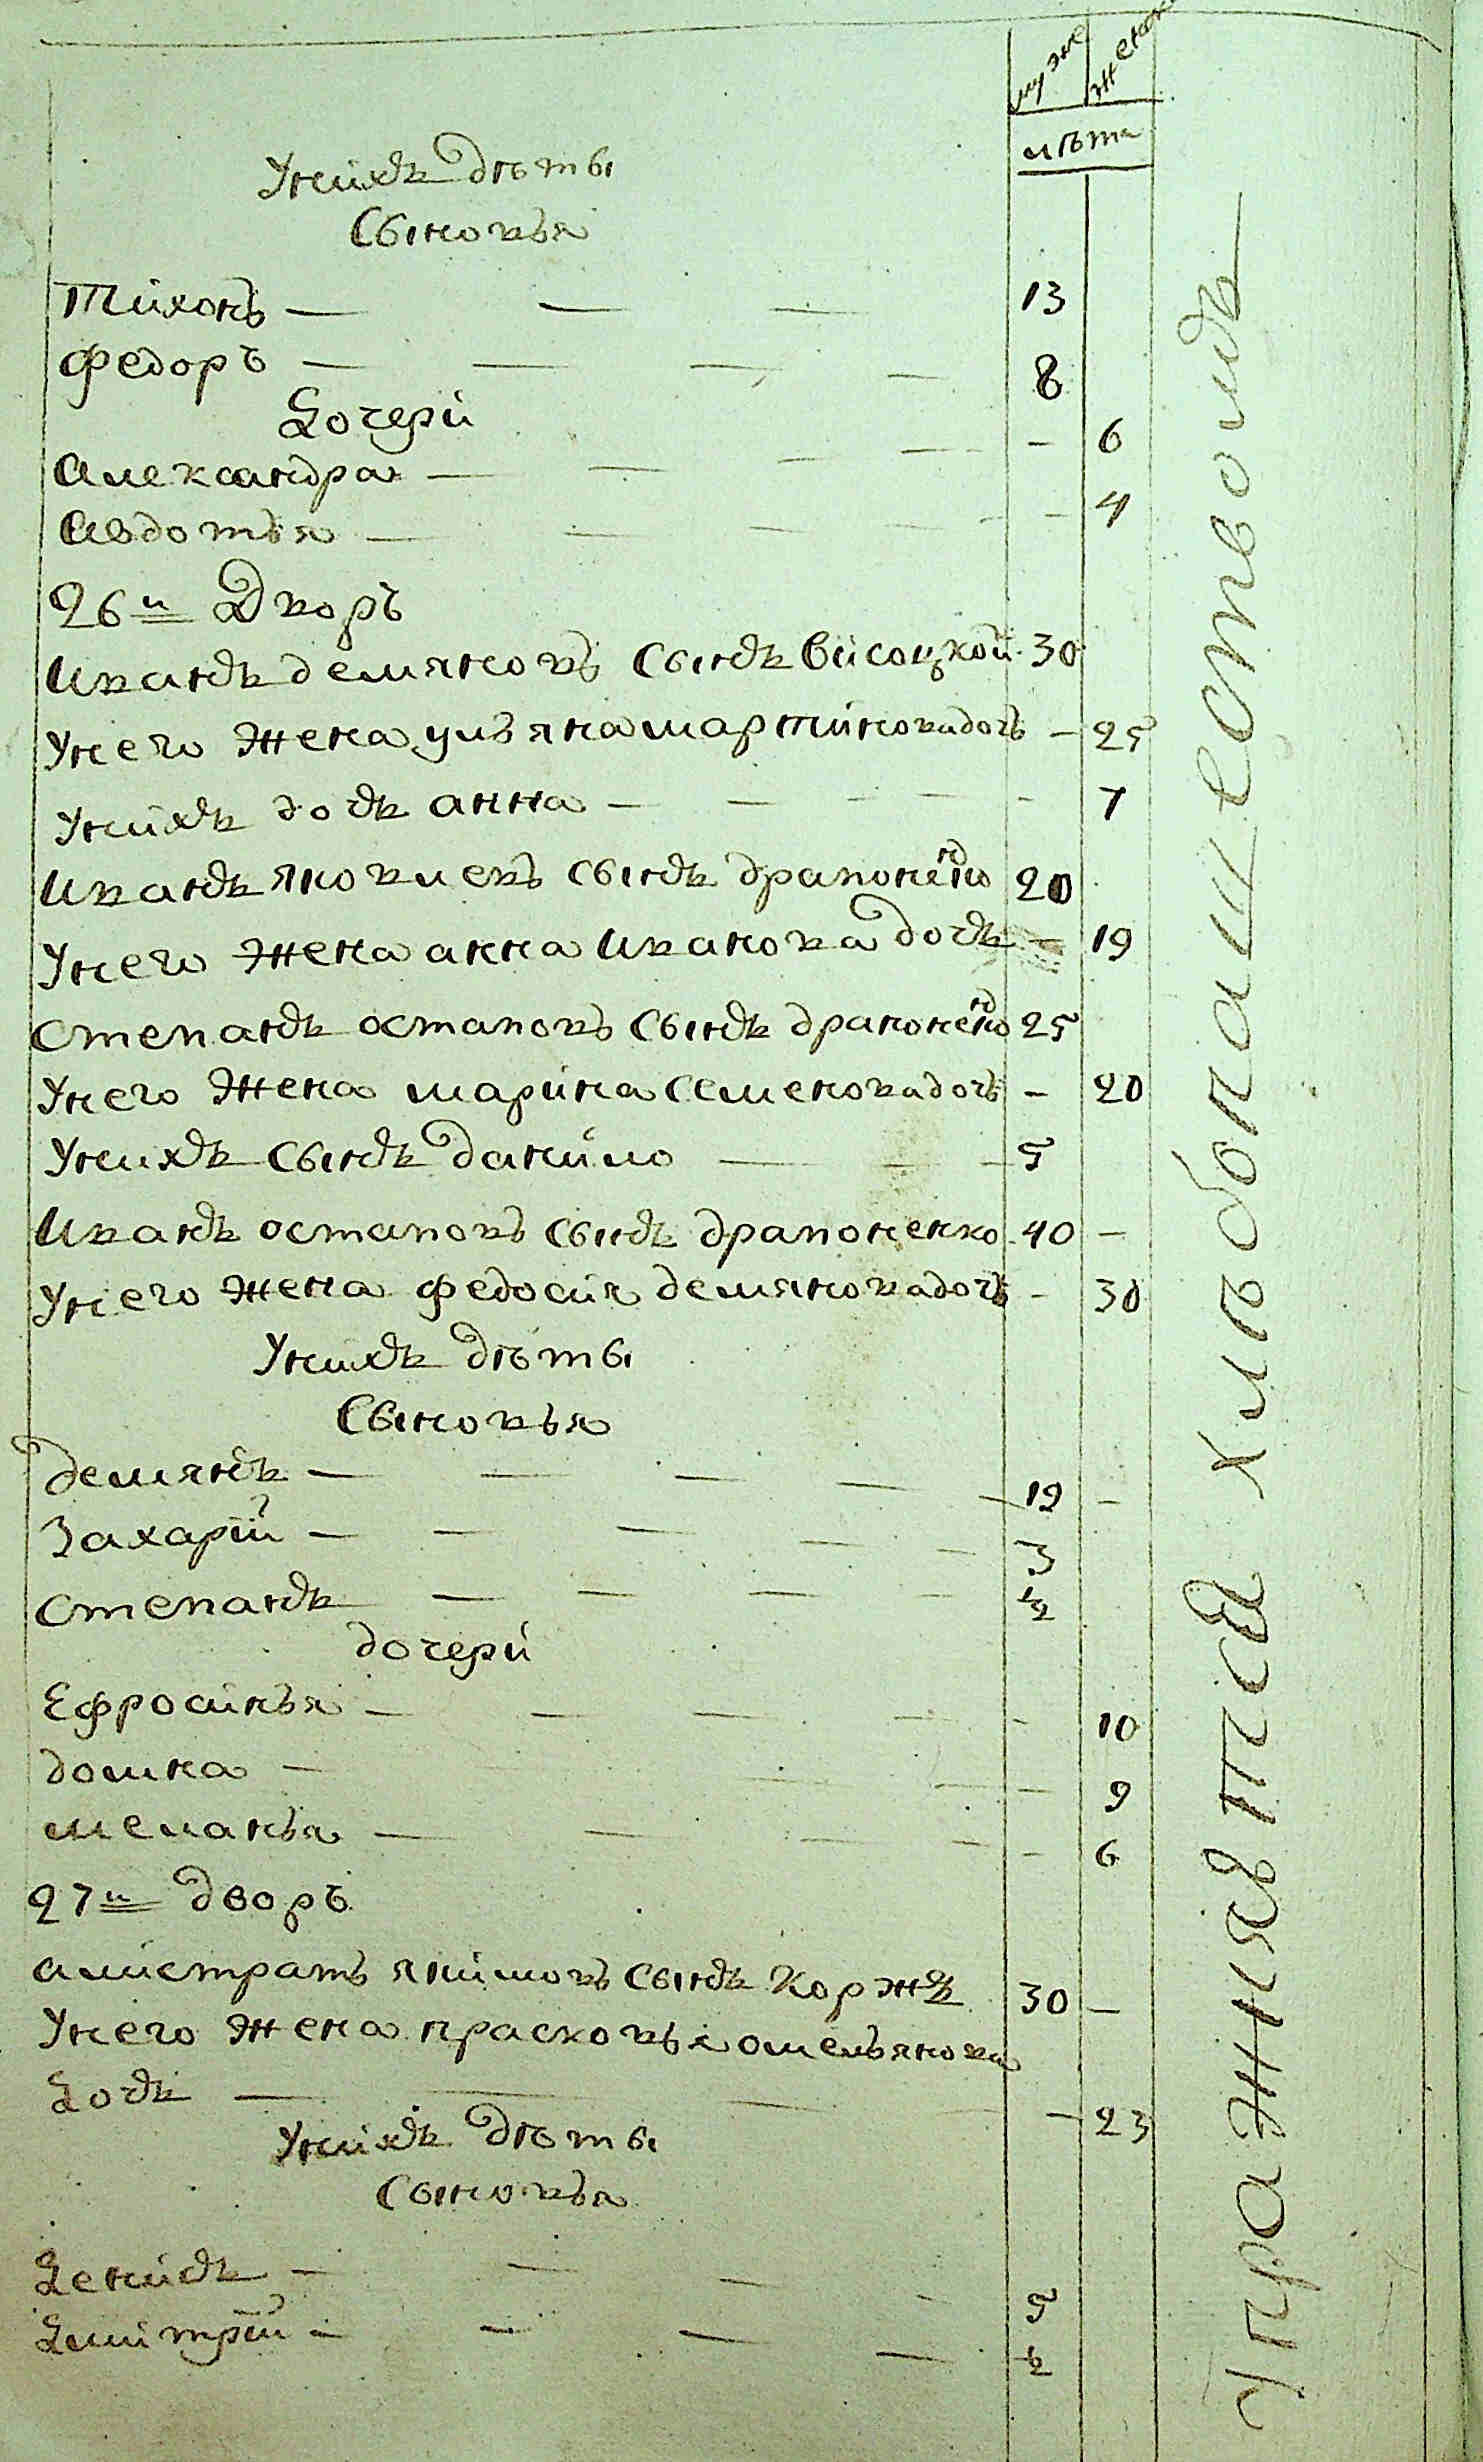 муже женс
лѣта
Унихъ дѣты
Сыновья
Тихонъ — — — 13
Федоръ — — — — 8
Дочери
Александра — — — — - 6
Авдотья — — — — - 4
26й Дворъ
Иванъ демяновъ сынъ висоцкой 30
Унего жена ульяна мартинова дочь - 25
Унихъ дочъ анна — — — — - 7
Иванъ яковлевъ сынъ драпоненко 20
Унего жена анна иванова дочъ - 19
Степанъ остаповъ сынъ драпоненко 25
Унего жена марина семенова дочь - 20
Унихъ сынъ данило — — — 5
Иванъ остаповъ сынъ драпоненко 40 —
Унего жена федосия демянова дочь - 30
Унихъ дѣты
Сыновья
демянъ — — — — — 12 —
Захарий — — — — — 3
Степанъ — — — — 1/2
дочери
Ефросинья — — — — - 10
домна — — — — 9
меланья — — — — - 6
27й дворъ
амистратъ якимовъ сынъ Коржъ 30 —
Унего жена прасковья омельянова
Дочъ — — — — 23
Унихъ дѣты
Сыновья
Денисъ — — — — 5
Дмитрий — — — — 1/2
упражняѣтся хлѣбопашествомъ